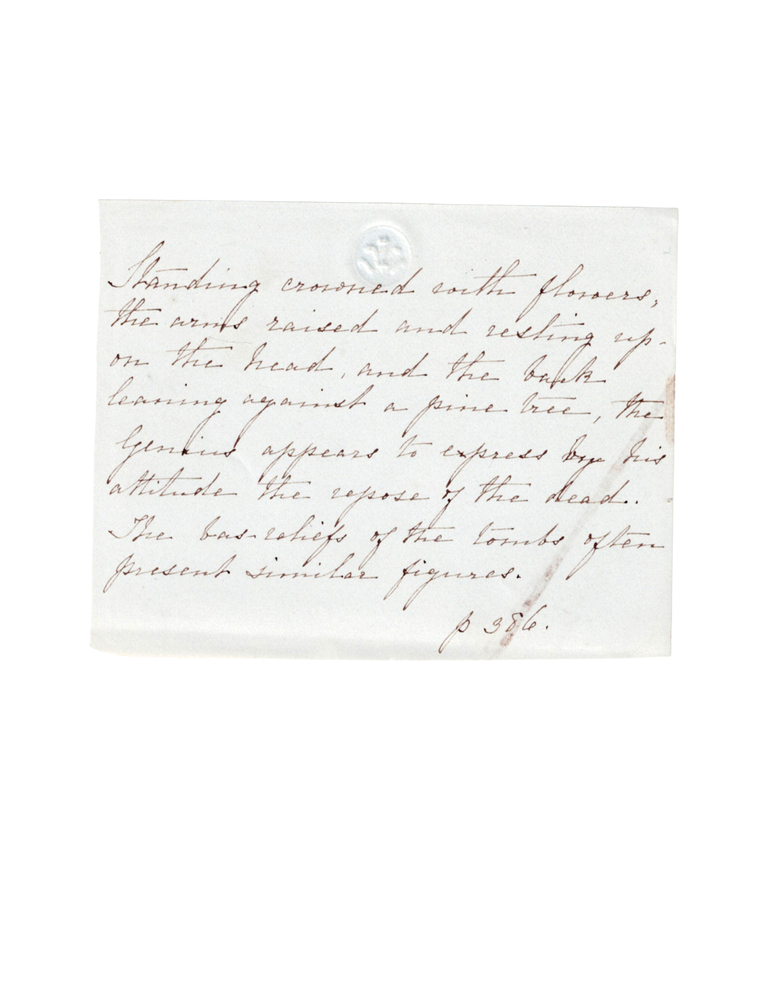 Standing crowned with flowers,
the arms raised and resting up-
on the head, and the back
leaning against a pine tree, the
Genius appears to express by his
attitude the repose of the dead.
The bas-reliefs of the tombs often
present similar figures.
p 386.